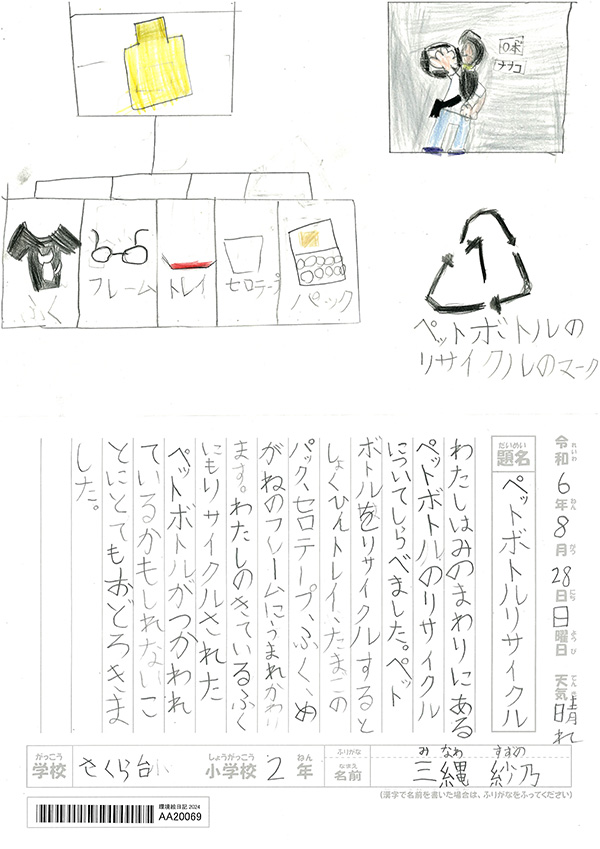 ロボ
ナナコ
ふく
フレーム
トレイ
セロテープ
パック
1
ペットボトルの
リサイクルのマーク
令和6年8月28日日曜日 天気 晴れ
れいわ ねん がつ にち ようび てんき
だいめい
題名 ペットボトルリサイクル
わたしはみのまわりにある
ペットボトルのリサイクル
についてしらべました。ペット
ボトルをリサイクルすると
しょくひんトレイ、たまごの
パック、セロテープ、ふく、め
がねのフレームにうまれかわり
ます。わたしのきているふく
にもリサイクルされた
ペットボトルがつかわれ
ているかもしれないこ
とにとてもおどろきま
した。
がっこう しょうがっこう ねん ふりがな みなわ すずの
学校 さくら台小 小学校 2年 なまえ 名前 三縄 紗乃
(漢字で名前を書いた場合は、ふりがなをふってください)
環境絵日記 2024
AA20069